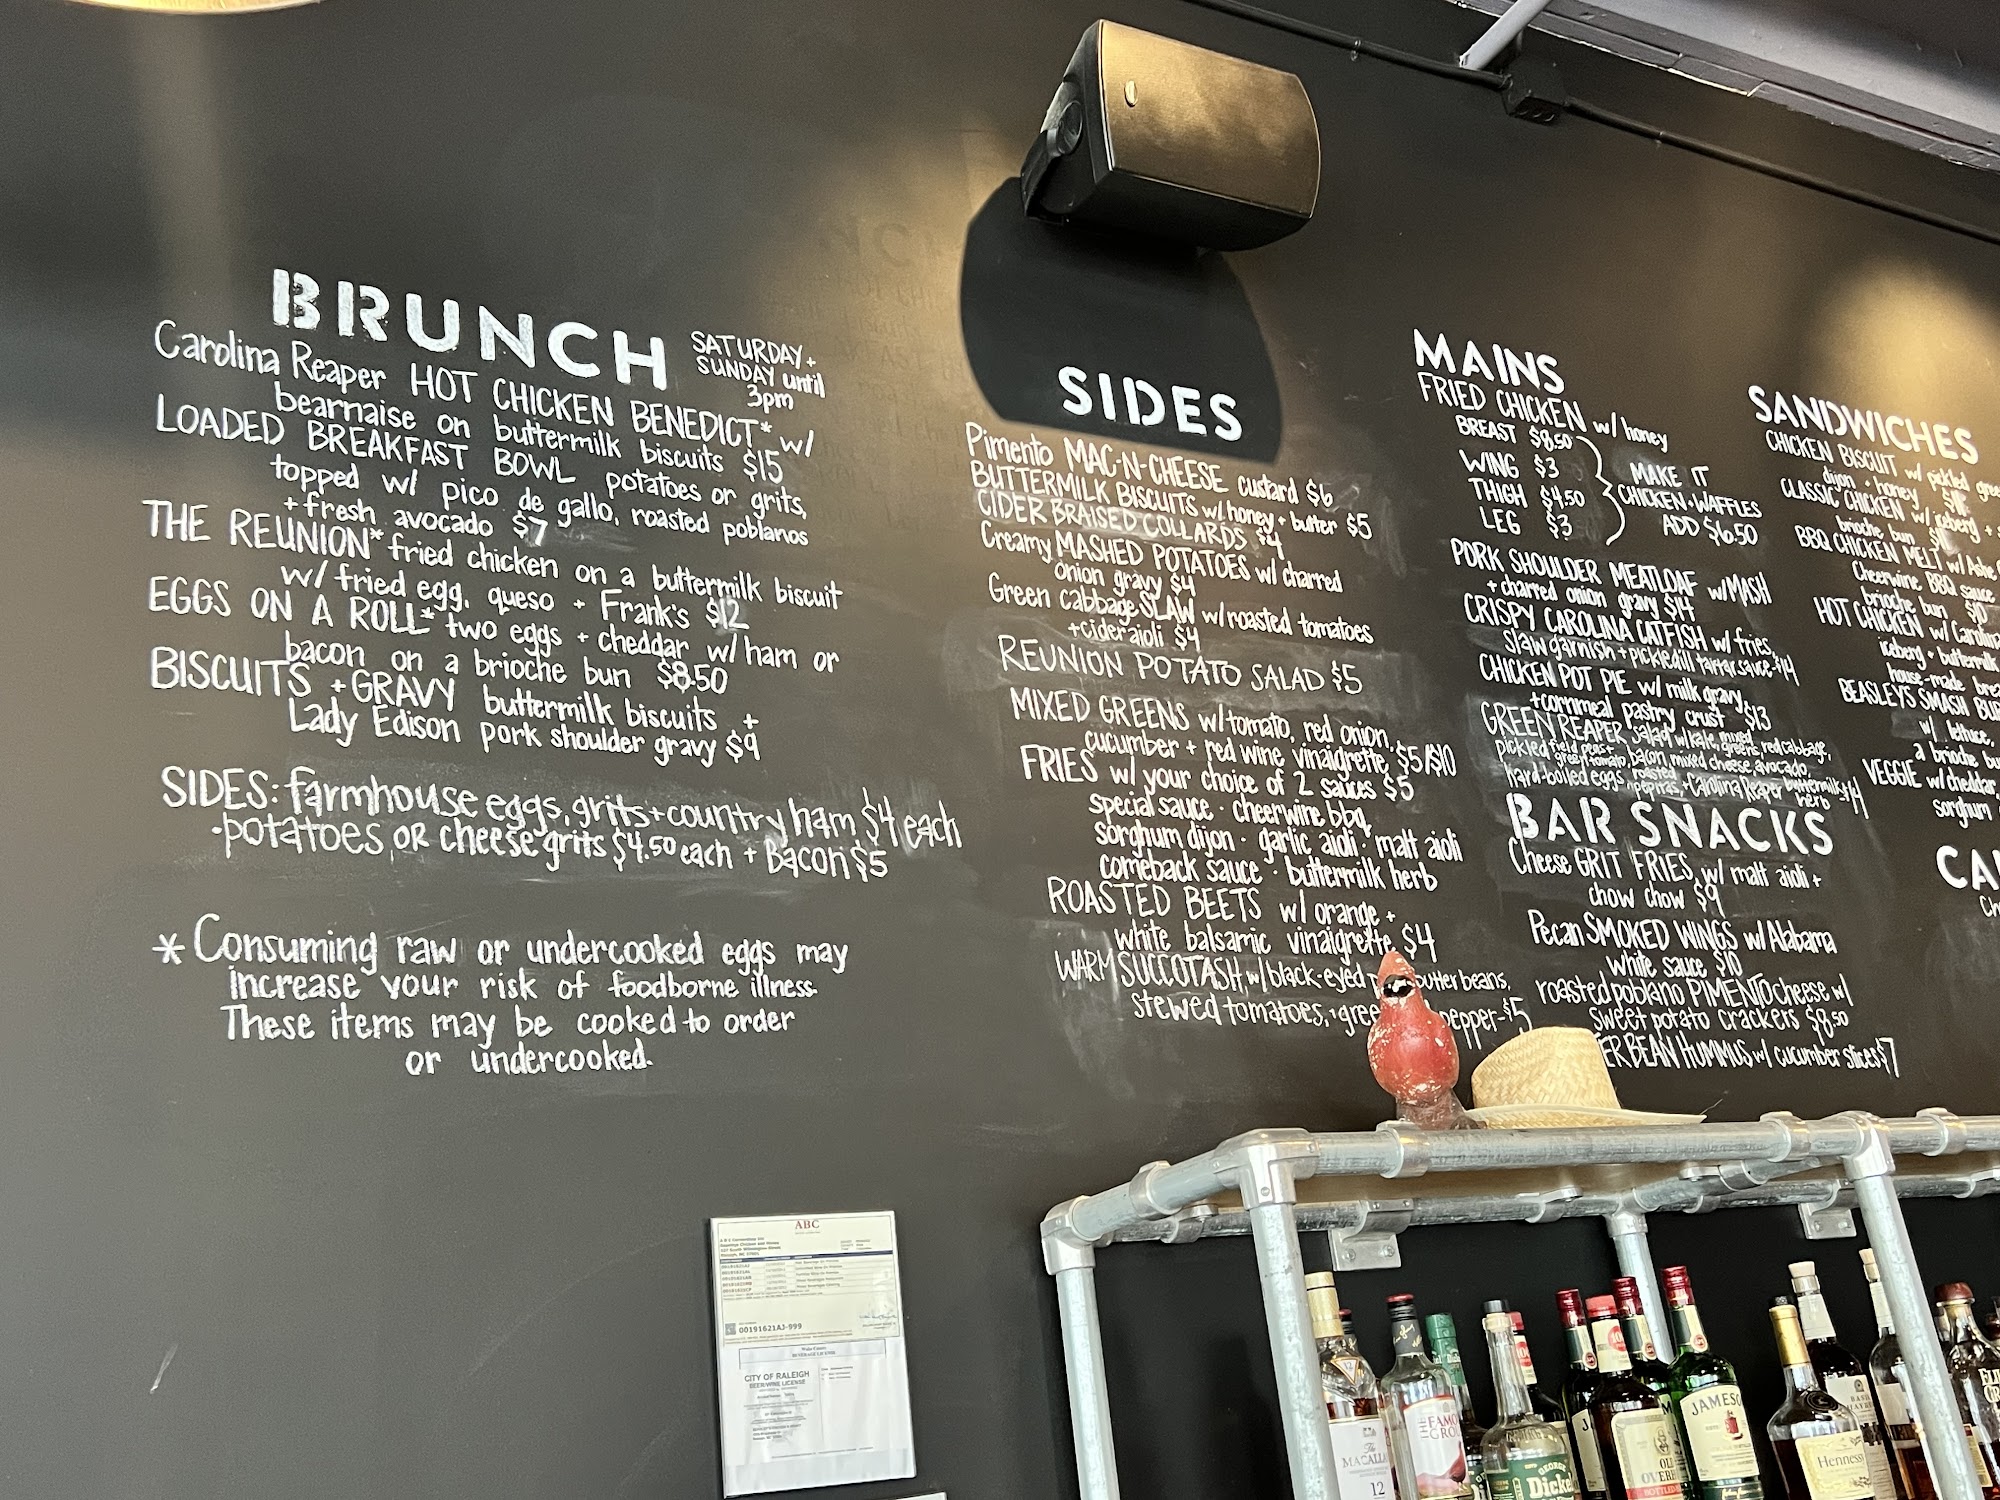 BRUNCH
SATURDAY +
SUNDAY until
3pm
Carolina Reaper HOT CHICKEN BENEDICT* w/
bearnaise on buttermilk biscuits $15
LOADED BREAKFAST BOWL potatoes or grits,
topped w/ pico de gallo, roasted poblanos
+ fresh avocado $7
THE REUNION* fried chicken on a buttermilk biscuit
w/ fried egg, queso + Frank's $12
EGGS ON A ROLL* two eggs + cheddar w/ ham or
bacon on a brioche bun $8.50
BISCUITS + GRAVY buttermilk biscuits +
Lady Edison pork shoulder gravy $9
SIDES: farmhouse eggs, grits + country ham $4 each
·potatoes, OR cheese grits $4.50 each + Bacon $5
* Consuming raw or undercooked eggs may
increase your risk of foodborne illness.
These items may be cooked to order
or undercooked.
SIDES
Pimento MAC-N-CHEESE custard $6
BUTTERMILK BISCUITS w/ honey + butter $5
CIDER BRAISED COLLARDS $4
Creamy MASHED POTATOES w/ charred
onion gravy $4
Green cabbage SLAW w/ roasted tomatoes
+ cider aioli $4
REUNION POTATO SALAD $5
MIXED GREENS w/ tomato, red onion,
cucumber + red wine vinaigrette $5/$10
FRIES w/ your choice of 2 sauces $5
special sauce · cheerwine bbq
sorghum dijon · garlic aioli · malt aioli
comeback sauce · buttermilk herb
ROASTED BEETS w/ orange +
white balsamic vinaigrette $4
WARM SUCCOTASH, w/ black-eyed butter beans,
stewed tomatoes, pepper - $5
MAINS
FRIED CHICKEN w/ honey
BREAST $8.50
WING $3
THIGH $4.50
LEG $3
MAKE IT
CHICKEN + WAFFLES
ADD $6.50
PORK SHOULDER MEATLOAF w/ MASH
+ charred onion gravy $14
CRISPY CAROLINA CATFISH w/ fries,
slaw garnish + pickledill tartar sauce $14
CHICKEN POT PIE w/ milk gravy
+ cornmeal pastry crust $13
GREEN REAPER salad w/ kale, mixed greens, red cabbage,
pickled field peas, green tomato, bacon, mixed cheese, avocado,
hard-boiled eggs, roasted pepitas, + Carolina Reaper buttermilk herb $14
BAR SNACKS
Cheese GRIT FRIES w/ malt aioli +
chow chow $9
Pecan SMOKED WINGS w/ Alabama
white sauce $10
roasted poblano PIMENTO cheese w/
sweet potato crackers $8.50
BEAN HUMMUS w/ cucumber slices $7
SANDWICHES
CHICKEN BISCUIT w/ pickled
dijon + honey
CLASSIC CHICKEN w/ iceberg +
brioche bun
BBQ CHICKEN MELT w/ Ashe
Cheerwine BBQ sauce
brioche bun $10
HOT CHICKEN w/ Carolina
iceberg + buttermilk
house-made
BEASLEY'S SMASH
w/ lettuce,
a brioche
VEGGIE w/ cheddar,
sorghum
ABC
00191621AJ-999
CITY OF RALEIGH
BEER/WINE LICENSE
The
MACALLAN
12
THE FAMOUS
GROUSE
GEORGE
Dickel
OLD
OVERHOLT
JAMESON
Hennessy